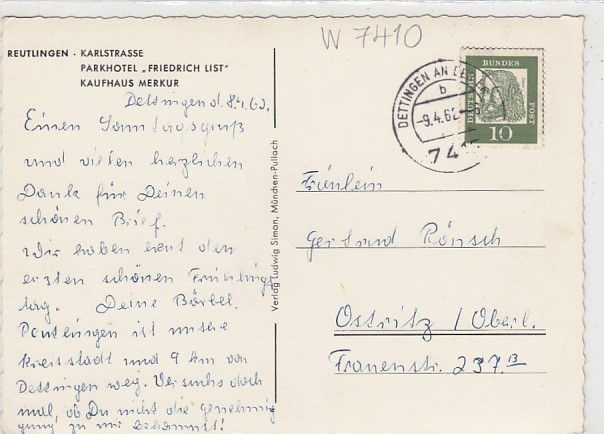 W 7410
REUTLINGEN · KARLSTRASSE
PARKHOTEL „FRIEDRICH LIST"
KAUFHAUS MERKUR
Dettingen d. 8.4.62.
Einen Sonntagsgruß
und vielen herzlichen
Dank für Deinen
schönen Brief.
Wir haben heut den
ersten schönen Frühlings
tag. Deine Bärbel.
Reutlingen ist unsere
Kreisstadt und 9 km von
Dettingen weg. Versuchs doch
mal, ob Du nicht die genehmig
gung zu mir bekommst!
Verlag Ludwig Simon, München-Pullach
DETTINGEN AN DER
b
-9.4.62
741
DEUTSCHE
BUNDES
POST
10
Fräulein
Gertrud Rönsch
Ostritz / Oberl.
Frauenstr. 237 13